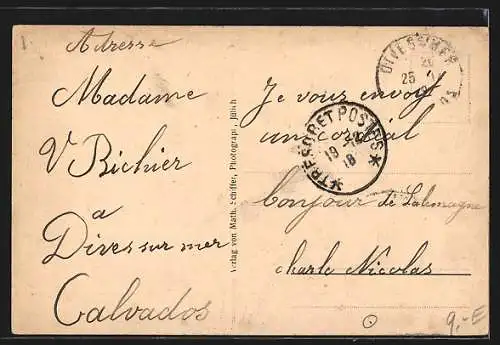 1.-
Adresse
Madame
V Bichier
a
Dives sur mer
Calvados
Verlag von Math. Schiffer, Photograph, Jülich
DIVES S MER
25
TRESOR ET POSTES
18
Je vous envoyt
un cordial
bonjour de Lalemagne
charle Nicolas
9,-E